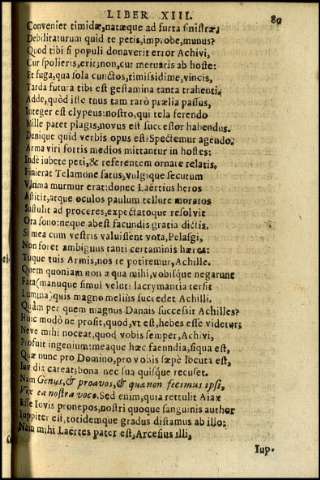 LIBER XIII. 89
Conveniet timidæ, natæque ad furta sinistræ,
Debilitaturum quid te petis, improbe, munus?
Quod tibi si populi donaverit error Achivi,
Cur spolieris, erit; non, cur metuaris ab hoste:
Et fuga, qua sola cunctos, timidissime, vincis,
Tarda futura tibi est gestamina tanta trahenti.
Adde, quòd iste tuus tam rarò prælia passus,
Integer est clypeus: nostro, qui tela ferendo
Mille patet plagis, novus est successor habendus.
Denique quid verbis opus est? Spectemur agendo.
Arma viri fortis medios mittantur in hostes:
Inde jubete peti, & referentem ornate relatis,
Finierat Telamone satus, vulgique secutum
Ultima murmur erat: donec Laërtius heros
Astitit, atque oculos paulum tellure moratos
Sustulit ad proceres, expectatoque resolvit
Ora sono: neque abest facundis gratia dictis.
Si mea cum vestris valuissent vota, Pelasgi,
Non foret ambiguus tanti certaminis hæres:
Tuque tuis Armis, nos te potiremur, Achille.
Quem quoniam non æqua mihi, vobisque negarunt
Fata (manuque simul veluti lacrymantia tersit
Lumina) quis magno meliùs succedet Achilli,
Quàm per quem magnus Danais successit Achilles?
Huic modò ne prosit, quod, vt est, hebes esse videtur:
Neve mihi noceat, quod vobis semper, Achivi,
Profuit ingenium: meaque hæc facundia, siqua est,
Quæ nunc pro Domino, pro vobis sæpè locuta est,
Invidia careat: bona nec sua quisque recuset.
Nam Genus, & proavos, & quæ non fecimus ipsi,
Vix ea nostra voco. Sed enim, quia rettulit Aiax
Esse Iovis pronepos, nostri quoque sanguinis author
Iuppiter est, totidemque gradus distamus ab illo:
Nam mihi Laërtes pater est, Arcesius illi,
Iup-